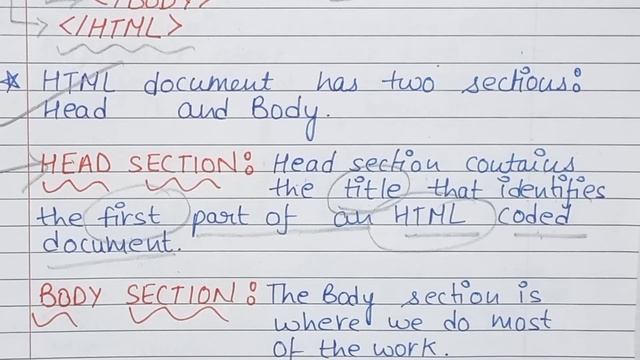 </BODY>
</HTML>
* HTML document has two sections:
Head and Body.
HEAD SECTION: Head section contains
the title that identifies
the first part of an HTML coded
document.
BODY SECTION: The Body section is
where we do most
of the work.